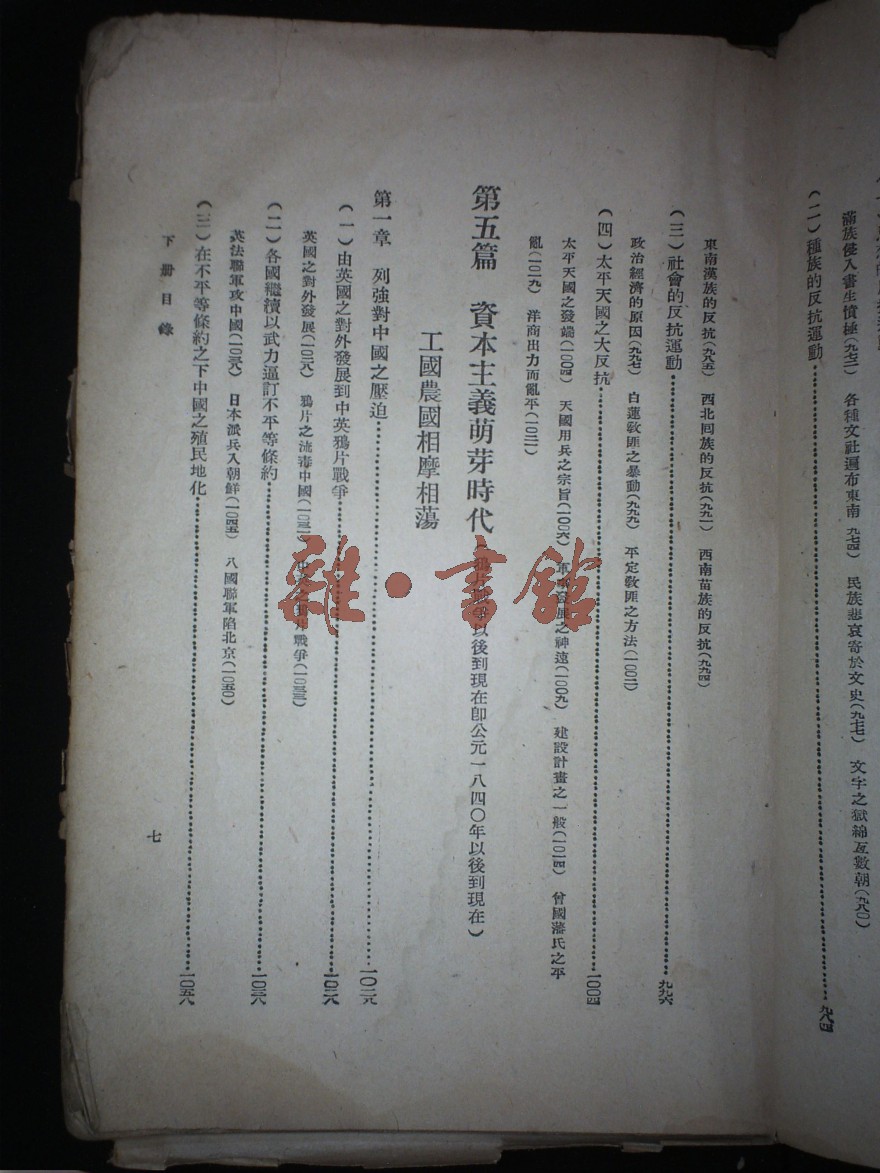 滿族侵入書生憤極(九七二) 各種文社遍布東南 九七四) 民族悲哀寄於文史(九七七) 文字之獄綿亙數朝(九八〇)
(二)種族的反抗運動……九八四
東南漢族的反抗(九八五) 西北回族的反抗(九九一) 西南苗族的反抗(九九四)
(三)社會的反抗運動……九九六
政治經濟的原因(九九七) 白蓮敎匪之暴動(九九九) 平定敎匪之方法(一〇〇二)
(四)太平天國之大反抗……一〇〇四
太平天國之發端(一〇〇四) 天國用兵之宗旨(一〇〇六) 軍事發展之神速(一〇〇九) 建設計畫之一般(一〇一四) 曾國藩氏之平
亂(一〇一九) 洋商出力而亂平(一〇二二)
第五篇 資本主義萌芽時代(鴉片戰爭以後到現在卽公元一八四〇年以後到現在)
工國農國相摩相蕩
第一章 列強對中國之壓迫……一〇二九
(一)由英國之對外發展到中英鴉片戰爭……一〇二八
英國之對外發展(一〇二八) 鴉片之流毒中國(一〇三一) 中英之鴉片戰爭(一〇三三)
(二)各國繼續以武力逼訂不平等條約……一〇三八
英法聯軍攻中國(一〇三八) 日本派兵入朝鮮(一〇四五) 八國聯軍陷北京(一〇五〇)
(三)在不平等條約之下中國之殖民地化……一〇五八
下冊目錄
七
雜·書館